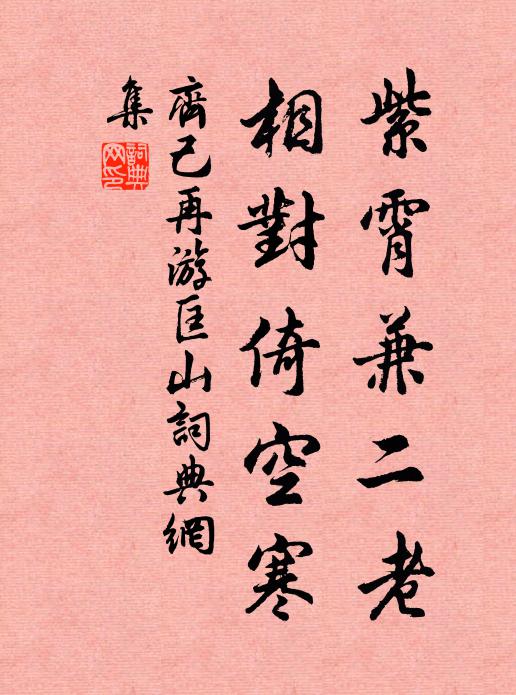 紫霄兼二老
相對倚空寒
齊己再游匡山詞典網
集
詞典
网印